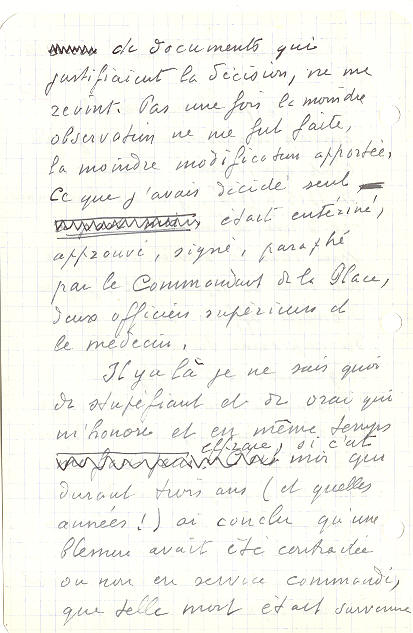 de documents qui
justifiaient la décision, ne me
revint. Pas une fois la moindre
observation ne me fut faite,
la moindre modification apportée.
Ce que j'avais décidé seul
était entériné,
approuvé, signé, paraphé
par le Commandant de la Place,
deux officiers supérieurs et
le médecin.
Il y a là je ne sais quoi
de stupéfiant et de vrai qui
m'honore et en même temps
effraie, si c'est
moi qui
durant trois ans (et quelles
années !) ai conclu qu'une
blessure avait été contractée
ou non en service commandé,
que telle mort était survenue